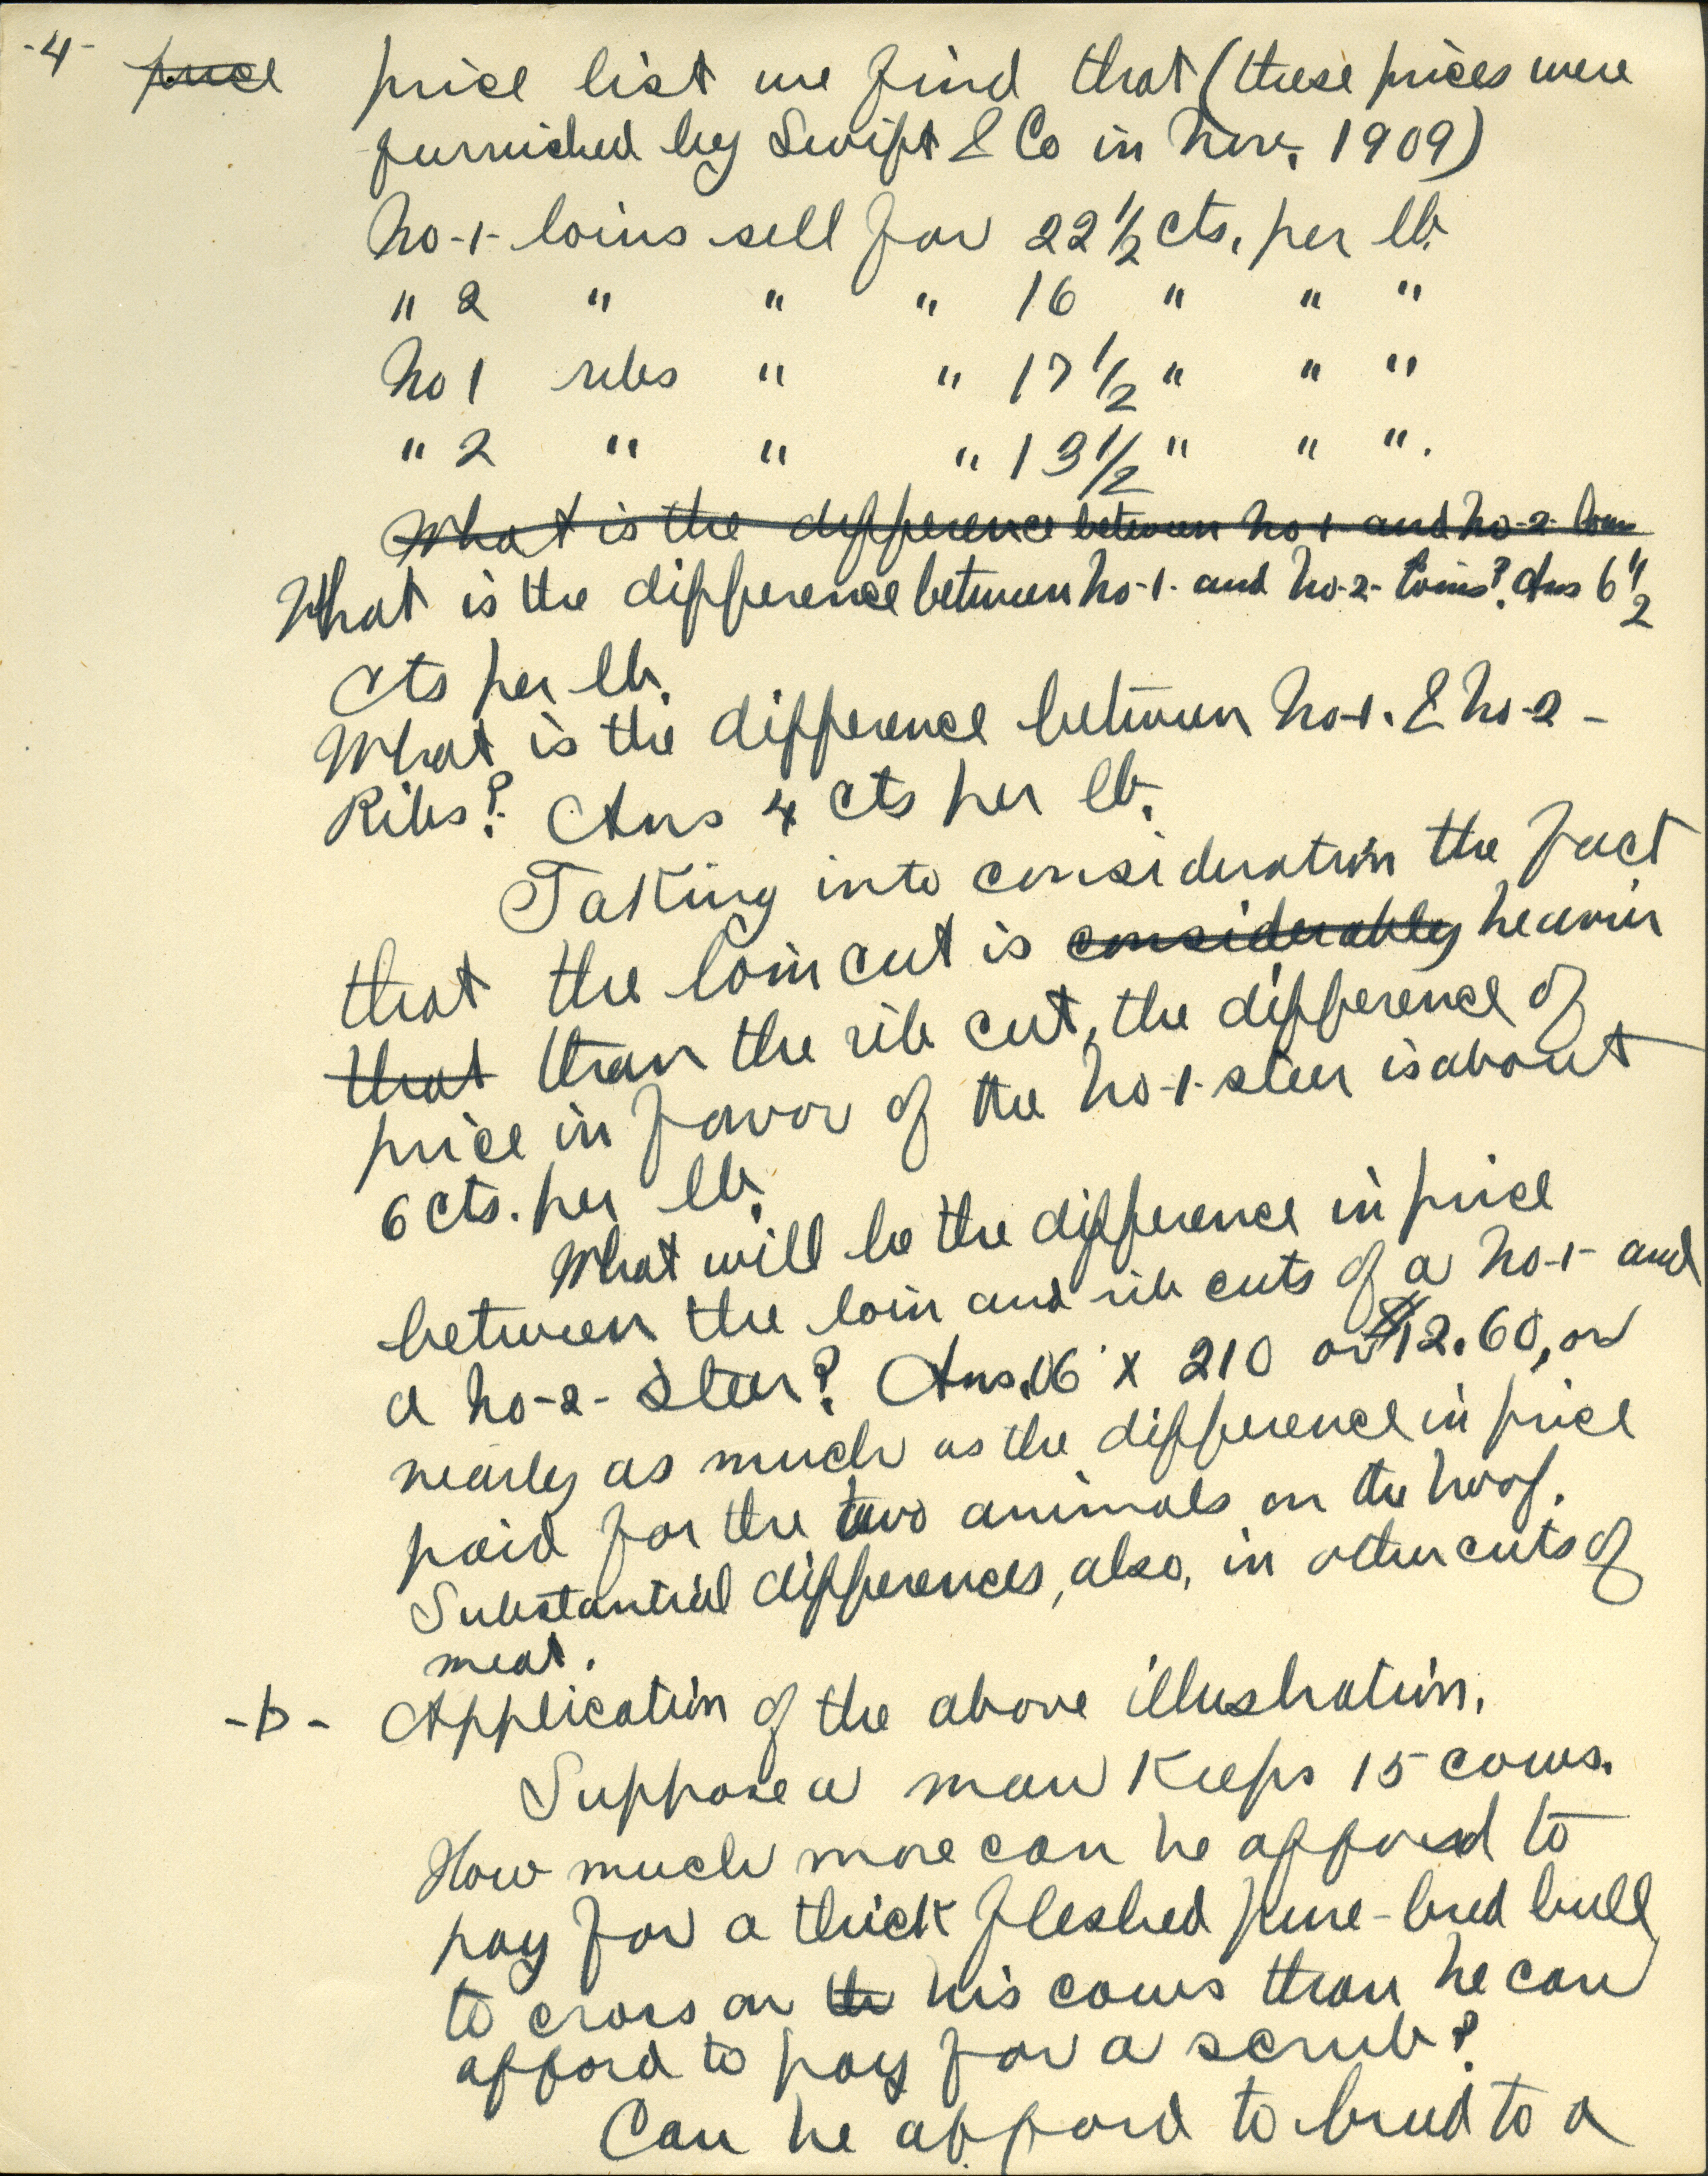 -4- price price list we find that (these prices were
furnished by Swift & Co in Nov. 1909)
No-1- loins sell for 22 1/2 cts. per lb.
" 2 " " " 16 " " "
No 1 ribs " " 17 1/2 " " "
" 2 " " " 13 1/2 " " ".
What is the difference between No-1- and No-2- loin
What is the difference between No-1- and No-2- loins? Ans 6 1/2
cts per lb.
What is the difference between No-1. & No-2-
Ribs? Ans 4 cts per lb.
Taking into consideration the fact
that the loin cut is considerably heavier
that than the rib cut, the difference of
price in favor of the No-1- steer is about
6 cts. per lb.
What will be the difference in price
between the loin and rib cuts of a No-1- and
a No-2- Steer? Ans .06 x 210 or $12.60, or
nearly as much as the difference in price
paid for the two animals on the hoof.
Substantial differences, also, in other cuts of
meat.
-b- Application of the above illustration.
Suppose a man Keeps 15 cows.
How much more can he afford to
pay for a thick fleshed pure-bred bull
to cross on the his cows than he can
afford to pay for a scrub?
Can he afford to breed to a